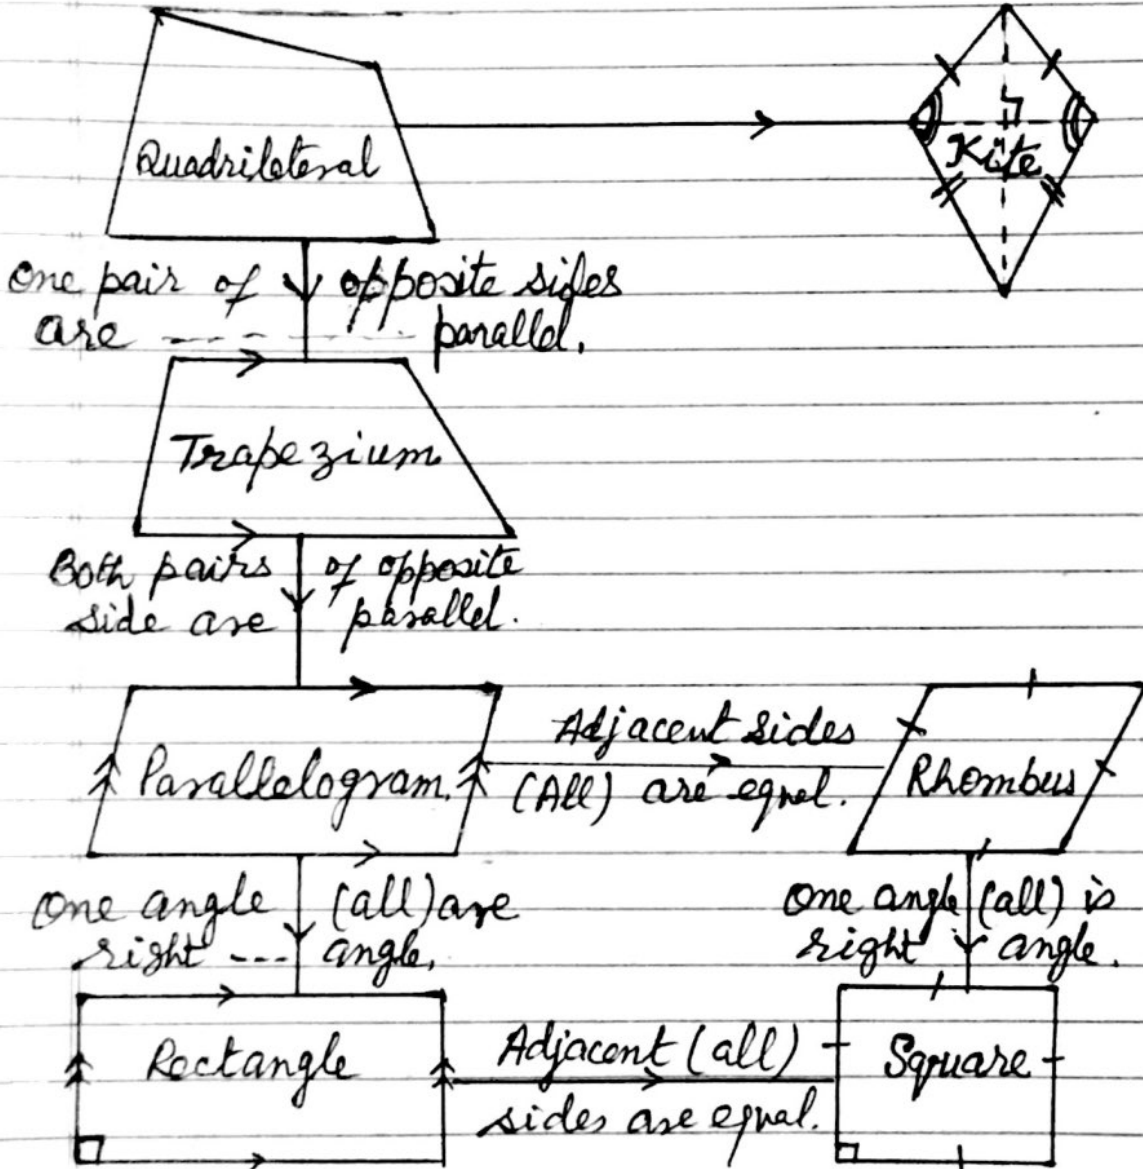 Quadrilateral
Kite
One pair of opposite sides
are parallel.
Trapezium
Both pairs of opposite
side are parallel.
Parallelogram.
Adjacent sides
(All) are equal.
Rhombus
One angle (all) are
right --- angle.
One angle (all) is
right angle.
Rectangle
Adjacent (all)
sides are equal.
Square